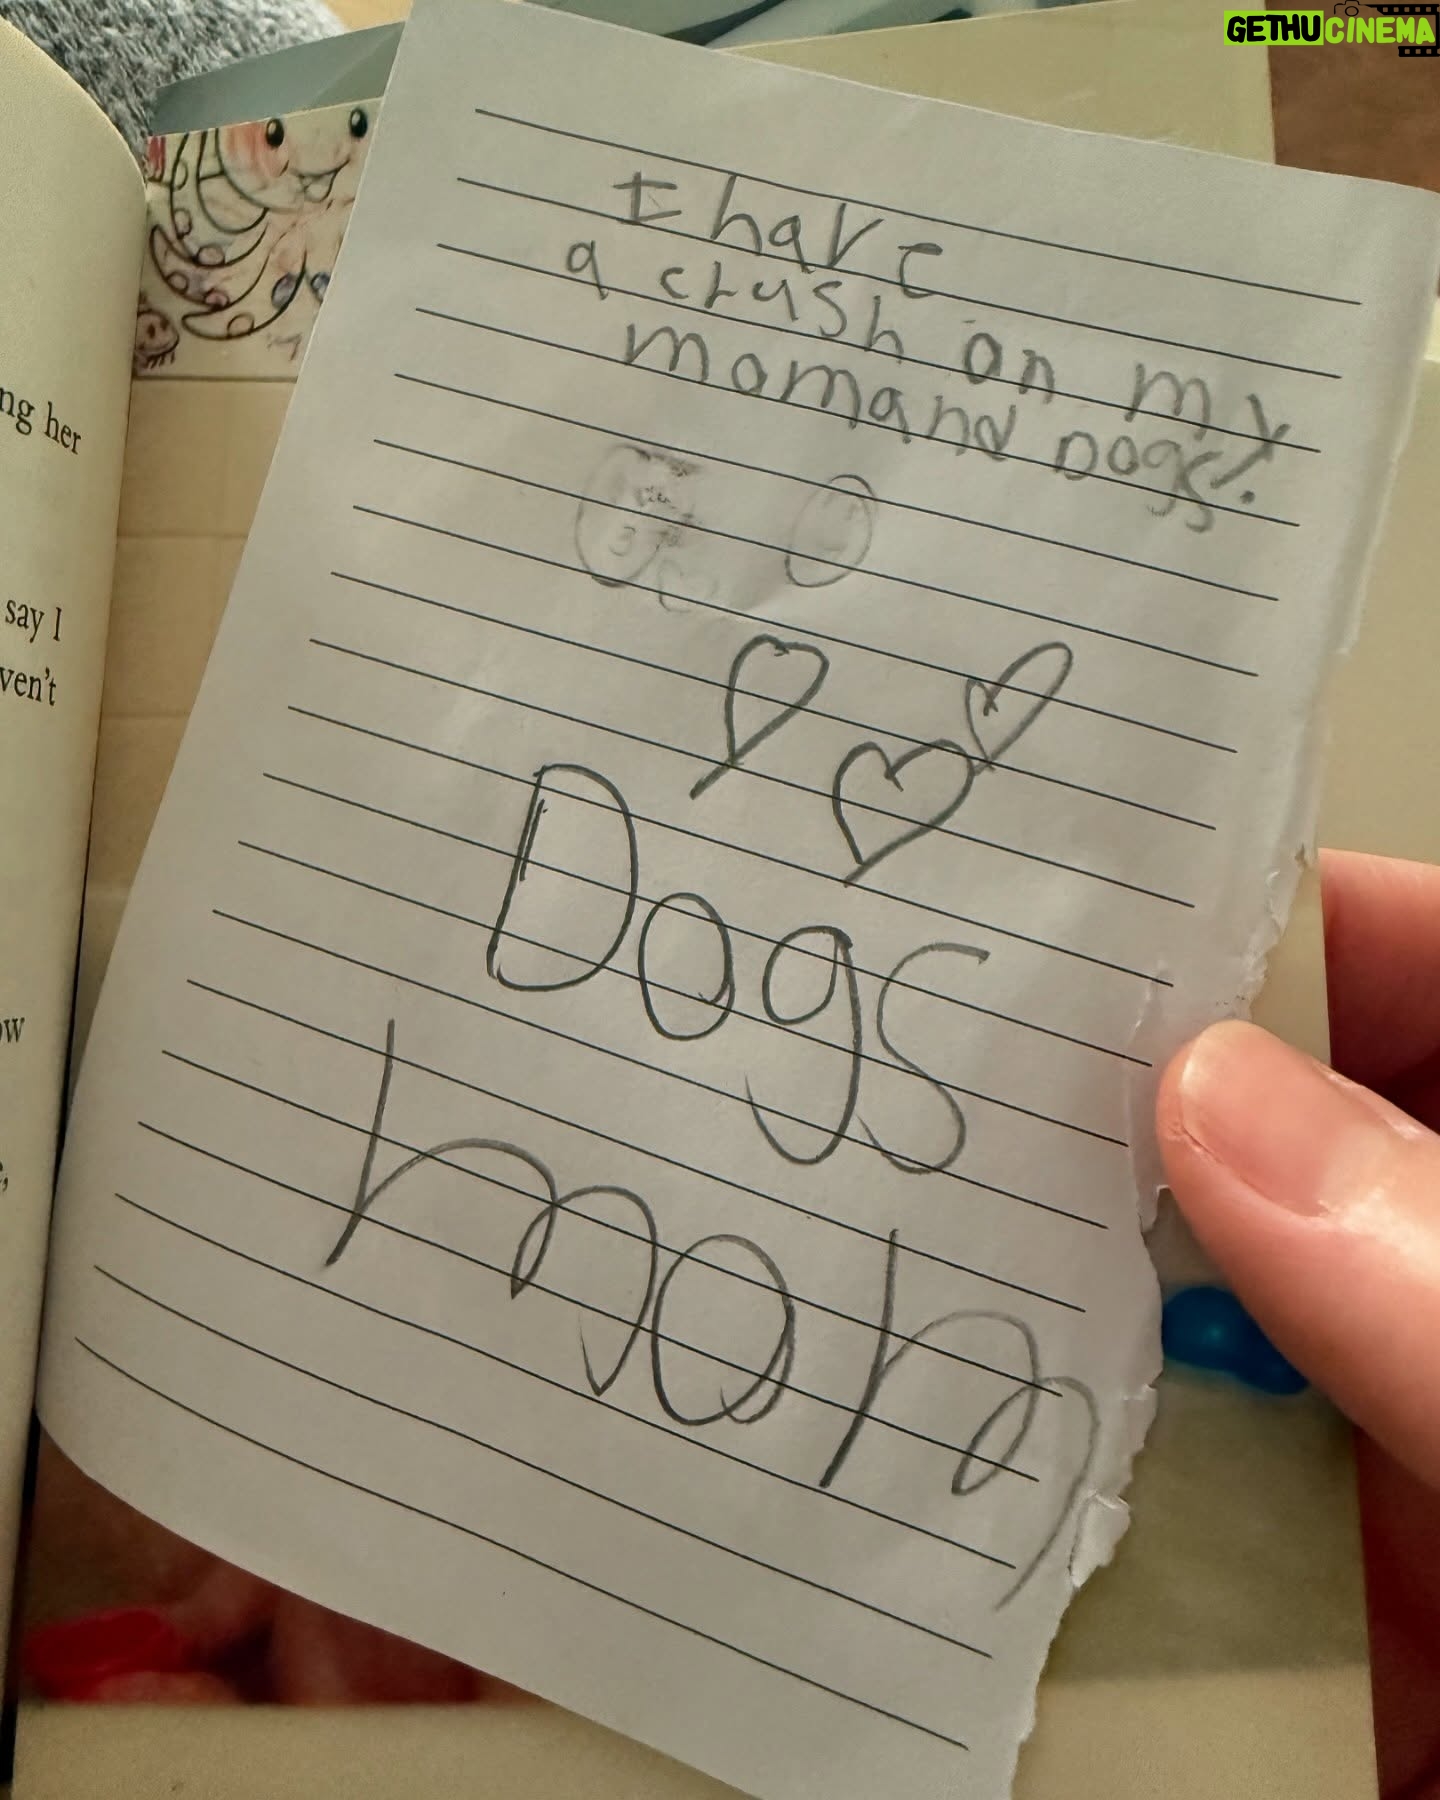 GETHUCINEMA
ng her
say I
ven't
ow
I have
a crush on my
momand Dogs!
3
Dogs
mom